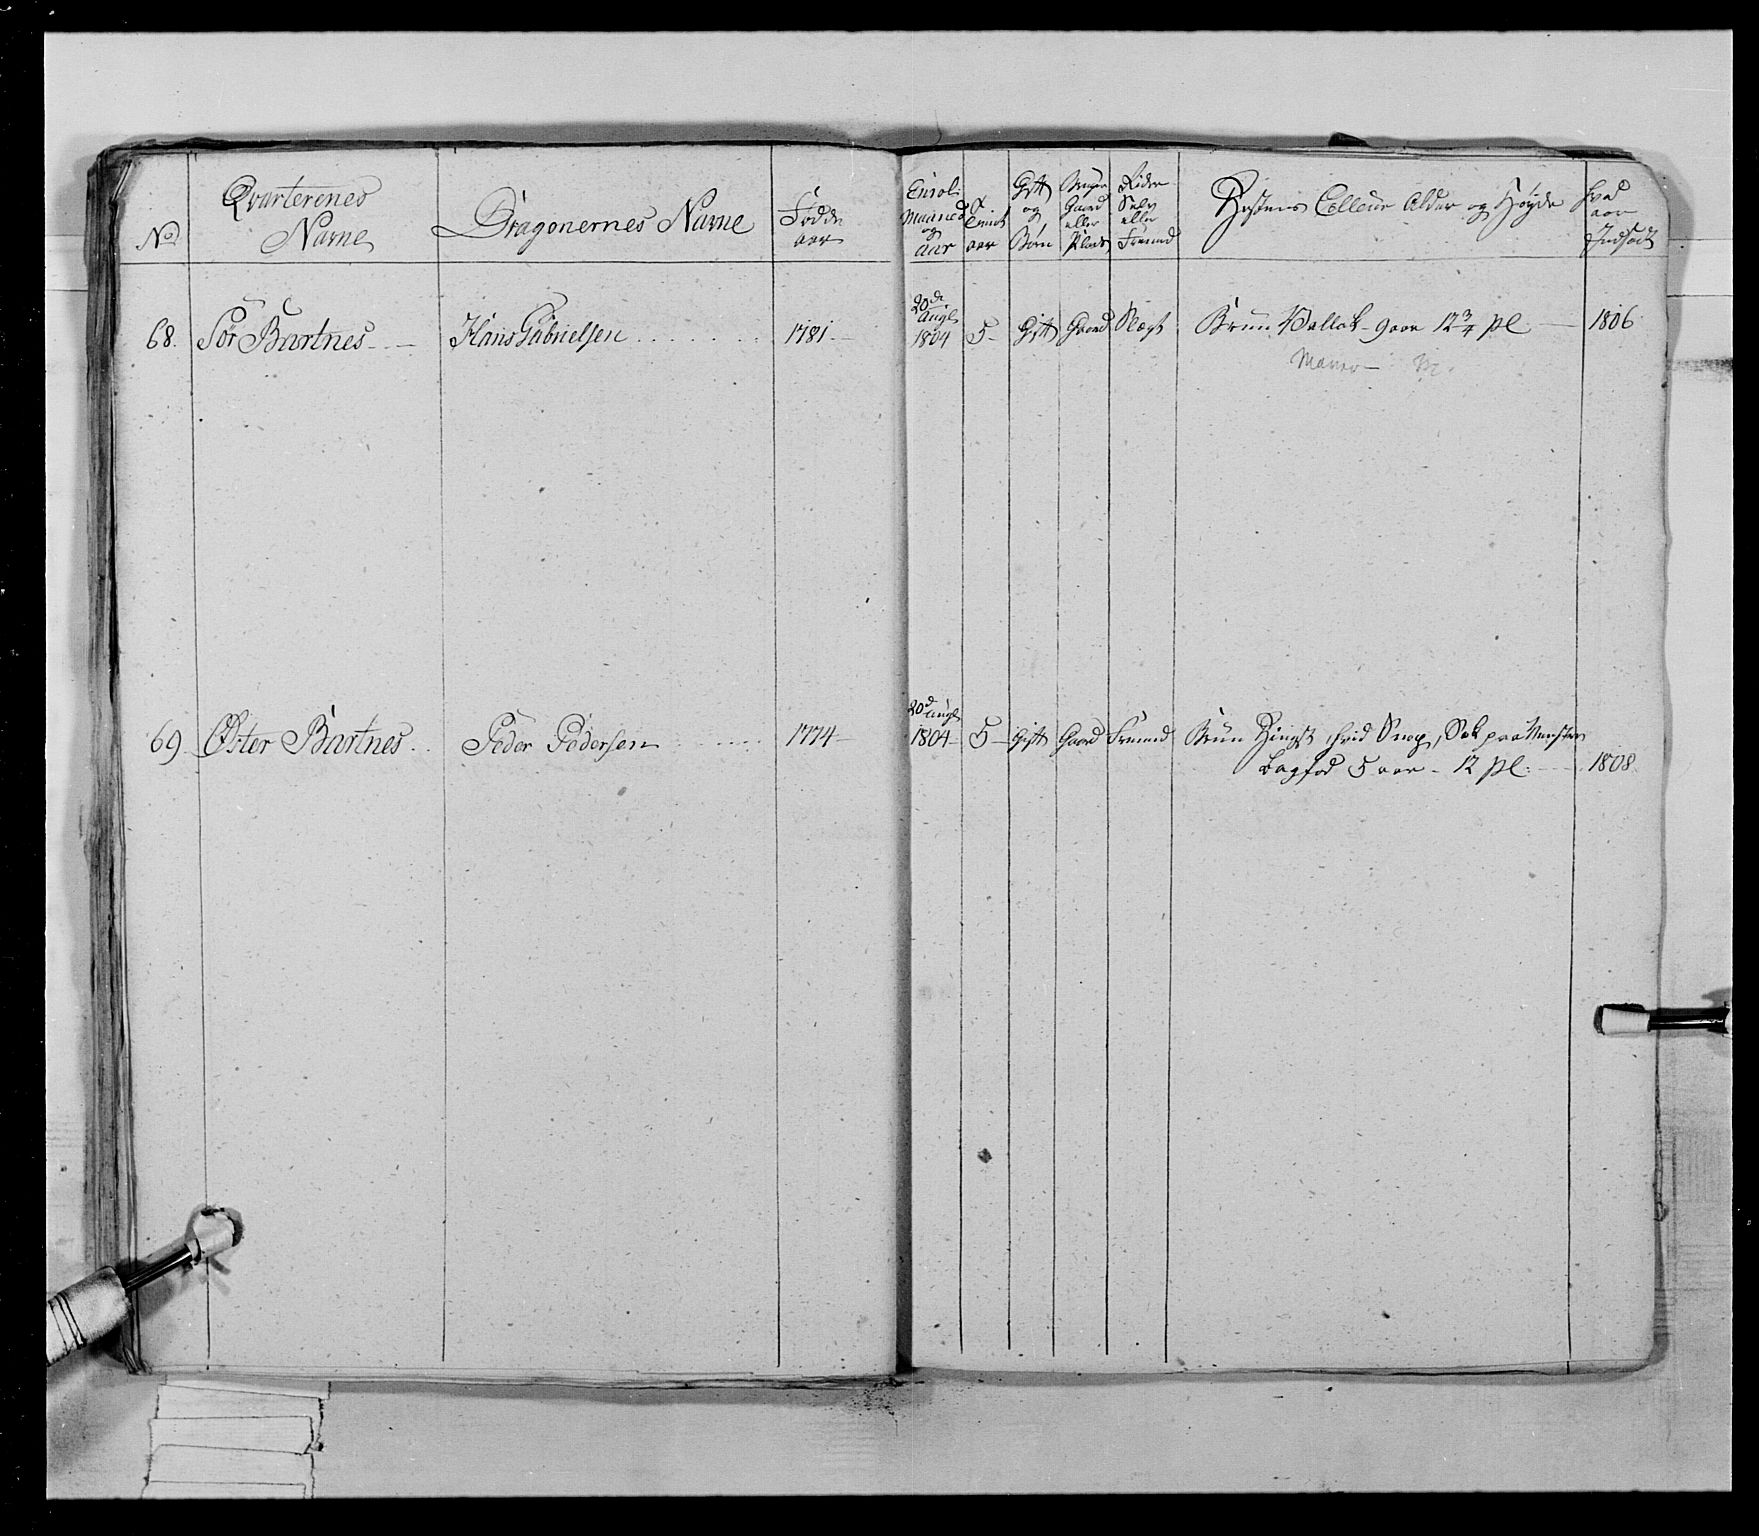 No
Qvarterenes
Navne
Dragonernes Navne
Fødde
aar
Enrol:
Maaned
og
aar
aar
Gift
og
Børn
Bruger
Gaard
eller
Plads
Rider
Selv
eller
Fremd
Hestens Colleur Alder og Høyde
hvad
aar
Indsadt
68. Sör Bartnes Hans Gabrielsen 1781. 20de Augt 1804 5 Gift Gaard Slegt Brun Wallak 9 aar 12 3/4 pl 1806
69 Öster Bartnes Peder Pedersen 1774 20d Augt 1804 5 Gift Gaard Fremd Brun Hingst, hvid Snop, Sok paa Venster
bagfod 5 aar - 12 pl. 1808